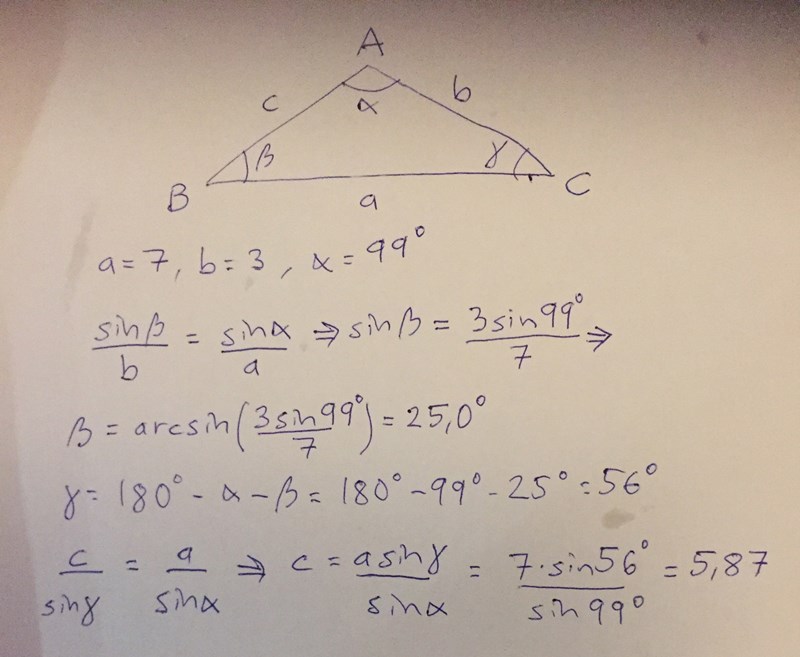 A
c α b
β γ
B a C
a = 7, b = 3, α = 99°
sinβ/b = sinα/a ⇒ sinβ = 3sin99°/7 ⇒
β = arcsin(3sin99°/7) = 25,0°
γ = 180° - α - β = 180° - 99° - 25° = 56°
c/sinγ = a/sinα ⇒ c = asinγ/sinα = 7·sin56°/sin99° = 5,87